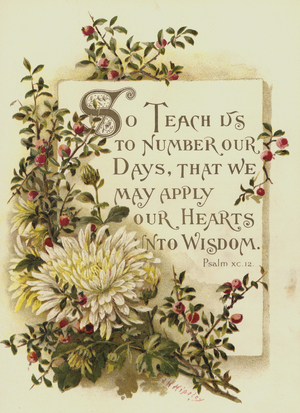 So Teach us
to number our
Days, that we
may apply
our Hearts
unto Wisdom.
Psalm xc. 12.